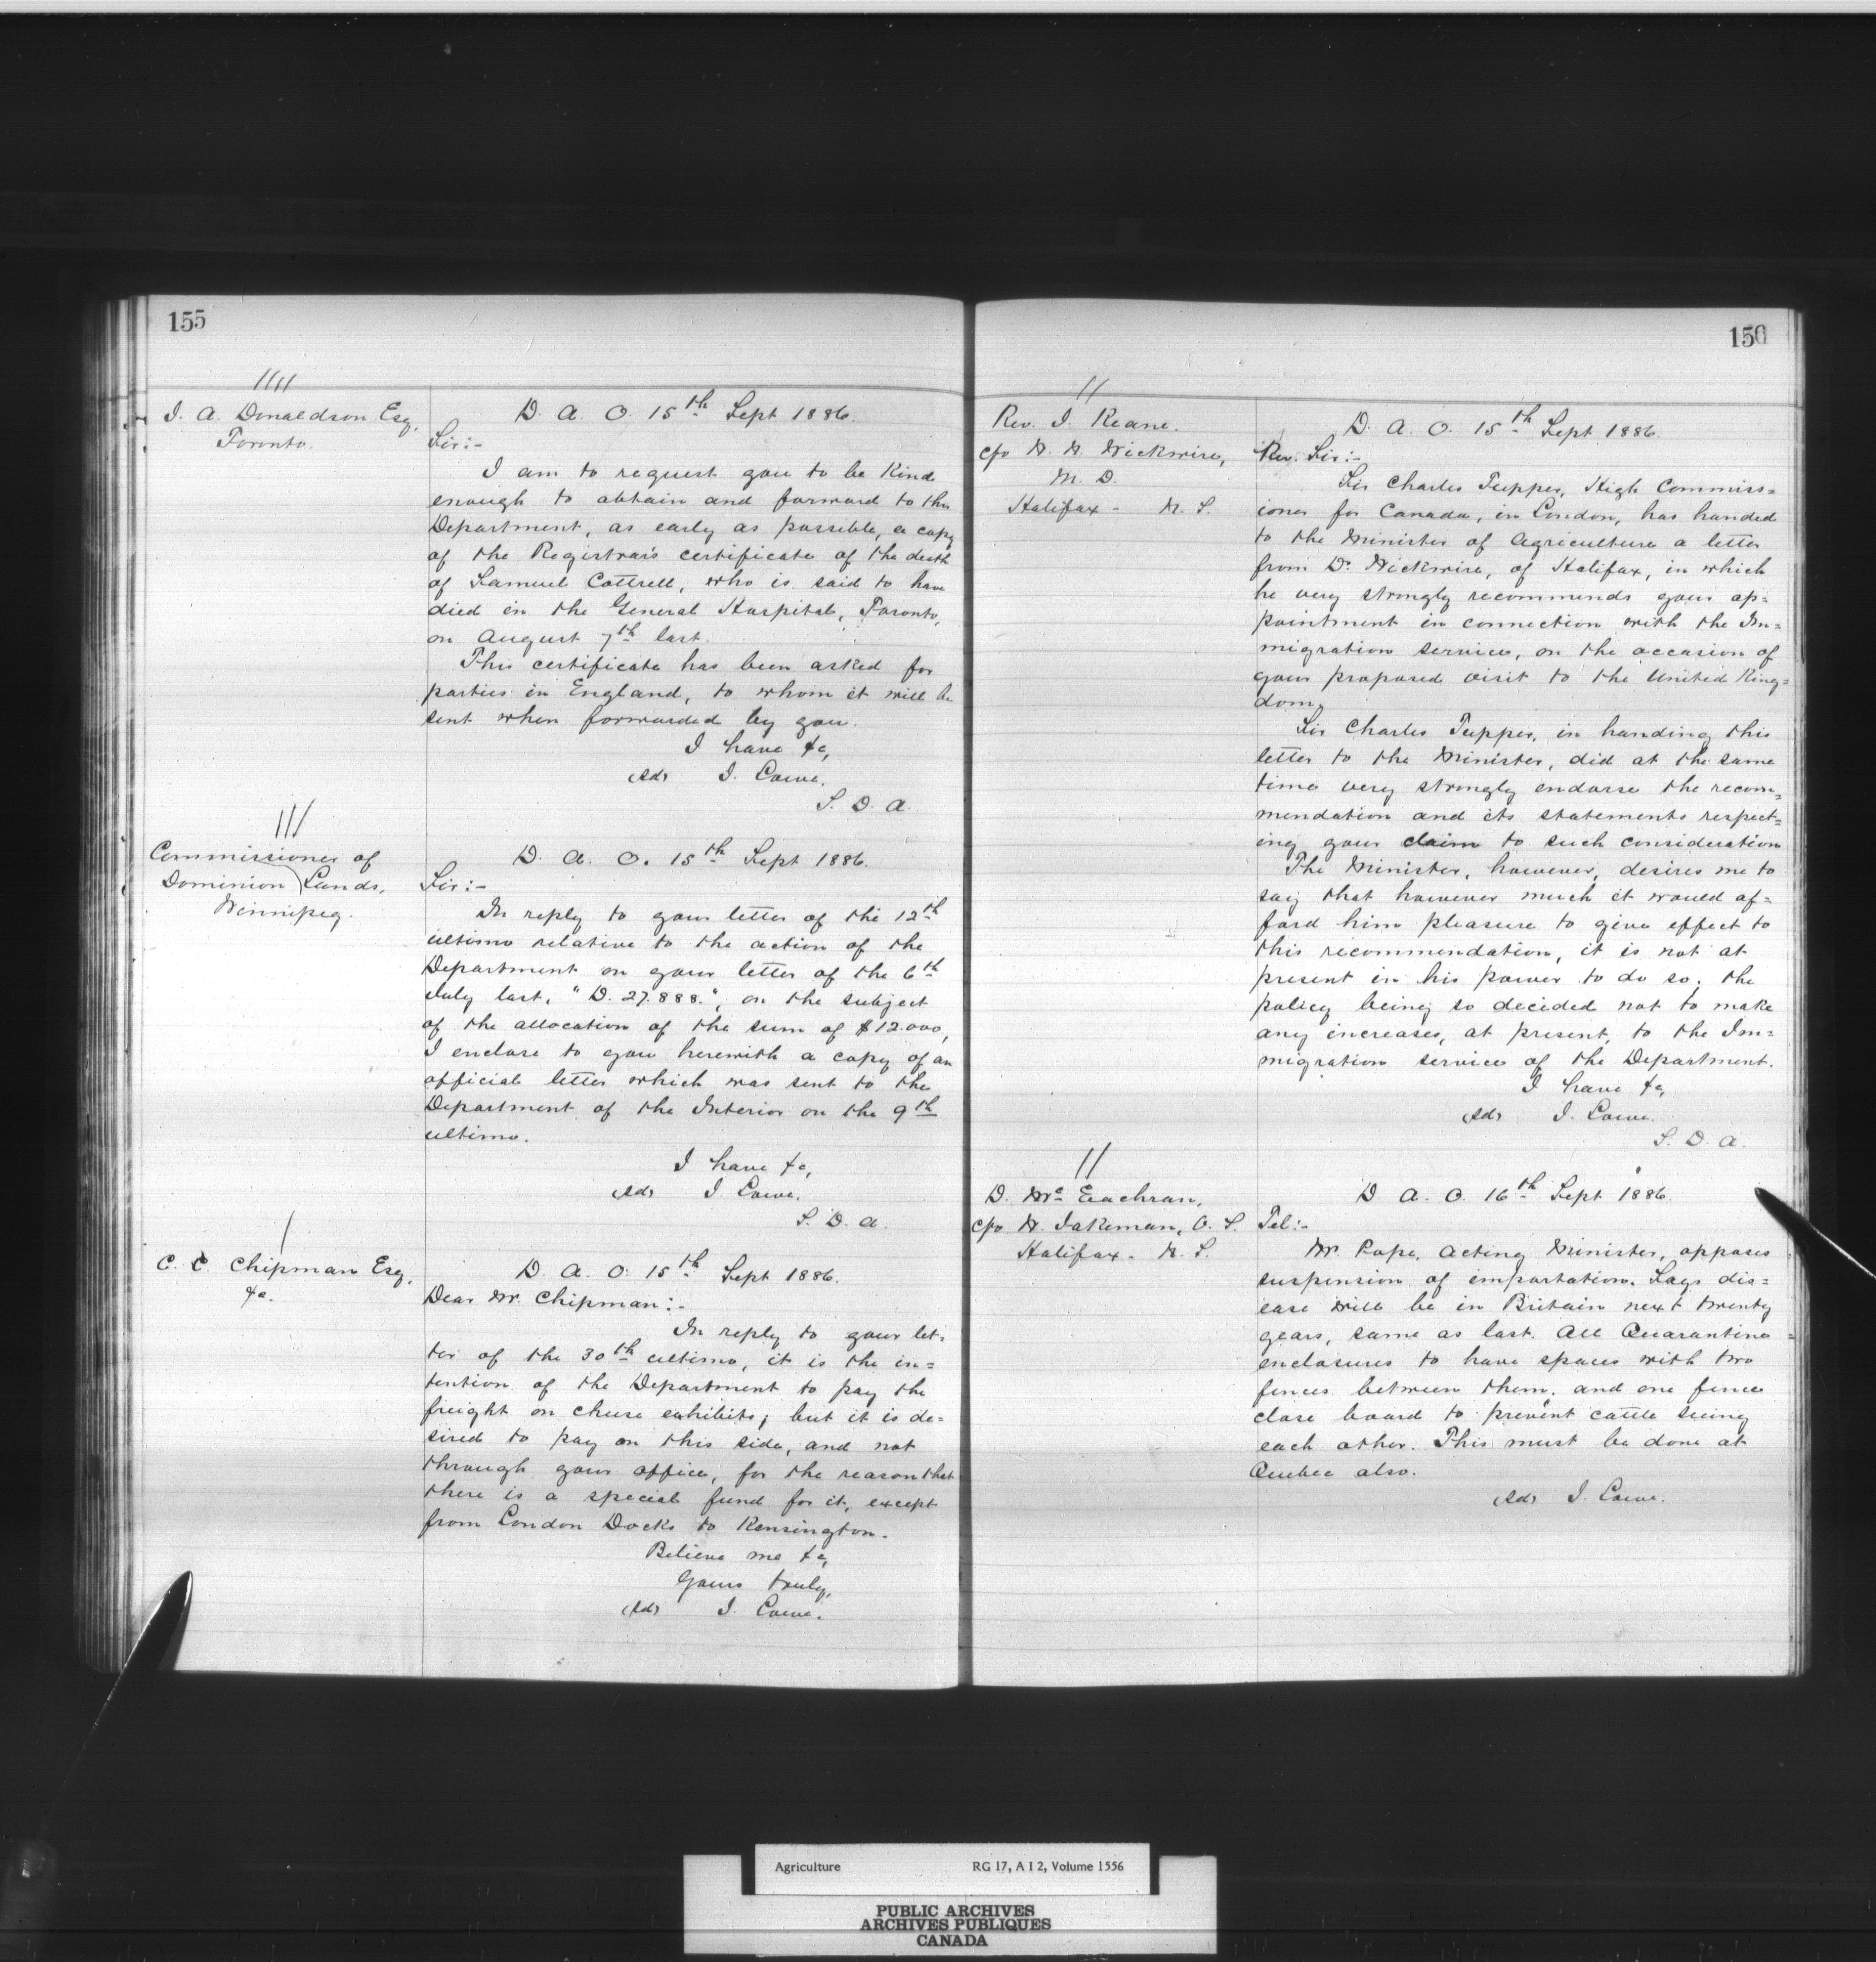 155
J. A. Donaldson Esq,
Toronto.
D. A. O. 15th Sept 1886.
Sir:-
I am to request you to be kind
enough to obtain and forward to this
Department, as early as possible, a copy
of the Registrar's certificate of the death
of Samuel Cottrell, who is said to have
died in the General Hospital, Toronto,
on August 7th last.
This certificate has been asked for
parties in England, to whom it will be
sent when forwarded by you.
I have &c,
(Sd) J. Lowe.
S. D. A.
Commissioner of
Dominion Lands,
Winnipeg.
D. A. O. 15th Sept 1886.
Sir:-
In reply to your letter of the 12th
ultimo relative to the action of the
Department on your letter of the 6th
July last, "D. 27.888.", on the subject
of the allocation of the sum of $12.000,
I enclose to you herewith a copy of an
official letter which was sent to the
Department of the Interior on the 9th
ultimo.
I have &c,
(Sd) J. Lowe.
S. D. A.
C. C. Chipman Esq,
&c.
D. A. O. 15th Sept 1886.
Dear Mr. Chipman:-
In reply to your let-
ter of the 30th ultimo, it is the in=
tention of the Department to pay the
freight on cheese exhibits; but it is de=
sired to pay on this side, and not
through your office, for the reason that
there is a special fund for it, except
from London Docks to Kensington.
Believe me &c,
Yours truly,
(Sd) J. Lowe.
156
Rev. J. Keane.
c/o W. N. Wickwire,
M. D.
Halifax - N. S.
D. A. O. 15th Sept 1886.
Rev. Sir:-
Sir Charles Tupper, High Commiss=
ioner for Canada, in London, has handed
to the Minister of Agriculture a letter
from Dr Wickwire, of Halifax, in which
he very strongly recommends your ap=
pointment in connection with the Im=
migration service, on the occasion of
your proposed visit to the United King=
dom.
Sir Charles Tupper, in handing this
letter to the Minister, did at the same
time very strongly endorse the recom=
mendation and its statements respect=
ing your claim to such consideration
The Minister, however, desires me to
say that however much it would af=
ford him pleasure to give effect to
this recommendation, it is not at
present in his power to do so, the
policy being so decided not to make
any increases, at present, to the Im=
migration service of the Department.
I have &c,
(Sd) J. Lowe.
S. D. A.
D. Mc Eachran,
c/o W. Jakeman, V. S.
Halifax - N. S.
D. A. O. 16th Sept 1886.
Tel:-
Mr. Pope, Acting Minister, opposes
suspension of importation. Says dis=
ease will be in Britain next twenty
years, same as last. All Quarantine
enclosures to have spaces with two
fences between them, and one fence
close board to prevent cattle seeing
each other. This must be done at
Quebec also.
(Sd) J. Lowe.
Agriculture RG 17, A I 2, Volume 1556
PUBLIC ARCHIVES
ARCHIVES PUBLIQUES
CANADA